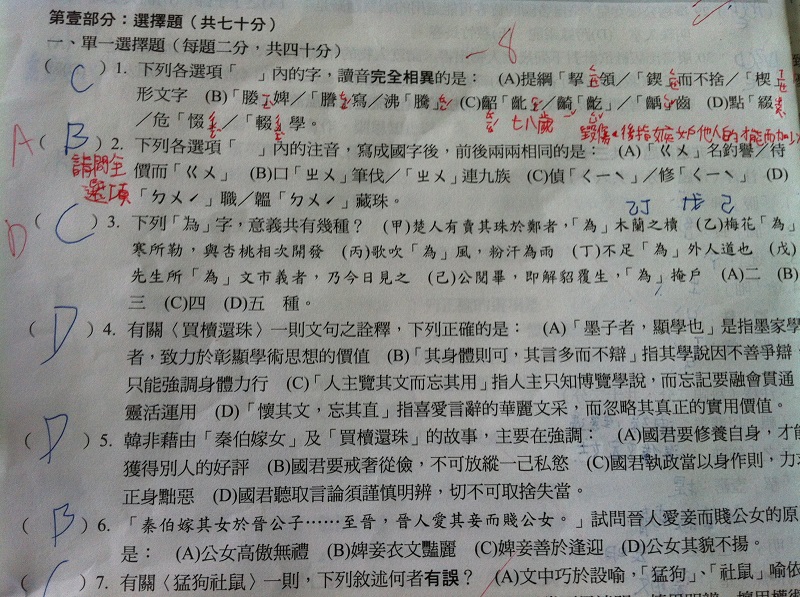 第壹部分：選擇題（共七十分）
一、單一選擇題（每題二分，共四十分） -8
( C ) 1. 下列各選項「　」內的字，讀音完全相異的是： (A)提綱「挈」領／「鍥」而不捨／「楔」
形文字 (B)「媵」婢／「謄」寫／沸「騰」 (C)齠「齔」／「齮」齕／「齲」齒 (D)點「綴」
／危「惙」／「輟」學。 七八歲 毀傷。後指嫉妒他人的才能而加以
A ( B ) 2. 下列各選項「　」內的注音，寫成國字後，前後兩兩相同的是： (A)「ㄍㄨ」名釣譽／待
請問全
價而「ㄍㄨ」 (B)口「ㄓㄨ」筆伐／「ㄓㄨ」連九族 (C)偵「ㄑㄧㄟ」／修「ㄑㄧㄟ」 (D)
選項
「ㄉㄨˊ」職／韞「ㄉㄨˊ」藏珠。
乙丁 戊 己
D ( C ) 3. 下列「為」字，意義共有幾種？ (甲)楚人有賣其珠於鄭者，「為」木蘭之櫝 (乙)梅花「為」
寒所勒，與杏桃相次開發 (丙)歌吹「為」風，粉汗為雨 (丁)不足「為」外人道也 (戊)
先生所「為」文市義者，乃今日見之 (己)公閱畢，即解貂覆生，「為」掩戶 (A)二 (B)
三 (C)四 (D)五 種。
( D ) 4. 有關〈買櫝還珠〉一則文句之詮釋，下列正確的是： (A)「墨子者，顯學也」是指墨家學
者，致力於彰顯學術思想的價值 (B)「其身體則可，其言多而不辯」指其學說因不善爭辯，
只能強調身體力行 (C)「人主覽其文而忘其用」指人主只知博覽學說，而忘記要融會貫通
靈活運用 (D)「懷其文，忘其直」指喜愛言辭的華麗文采，而忽略其真正的實用價值。
( D ) 5. 韓非藉由「秦伯嫁女」及「買櫝還珠」的故事，主要在強調： (A)國君要修養自身，才能
獲得別人的好評 (B)國君要戒奢從儉，不可放縱一己私慾 (C)國君執政當以身作則，力求
正身黜惡 (D)國君聽取言論須謹慎明辨，切不可取捨失當。
( B ) 6. 「秦伯嫁其女於晉公子……至晉，晉人愛其妾而賤公女。」試問晉人愛妾而賤公女的原
是： (A)公女高傲無禮 (B)婢妾衣文豔麗 (C)婢妾善於逢迎 (D)公女其貌不揚。
( C ) 7. 有關〈猛狗社鼠〉一則，下列敘述何者有誤？ (A)文中巧於設喻，「猛狗」、「社鼠」喻依